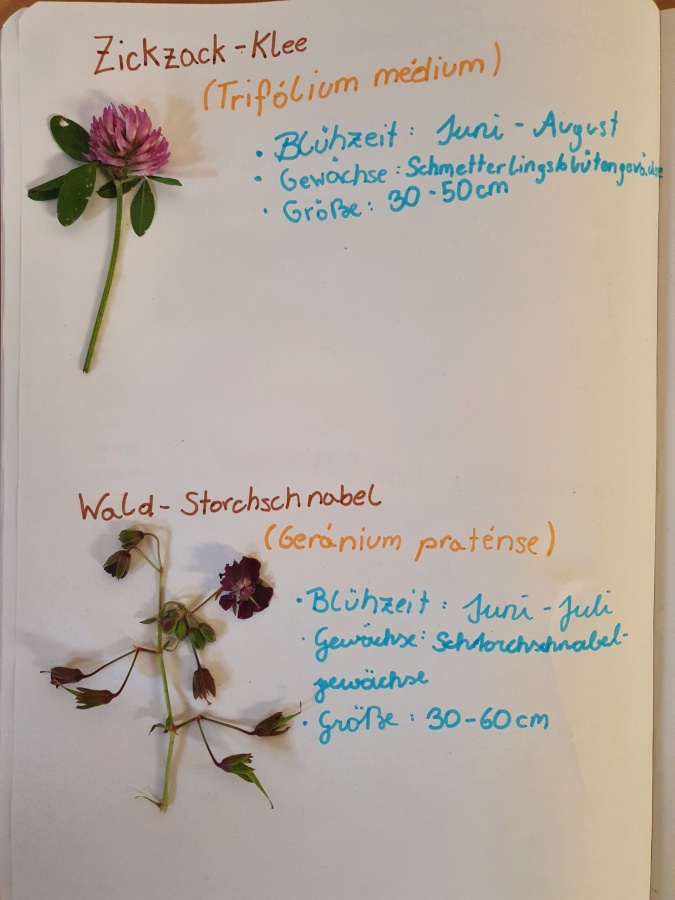 Zickzack-Klee
(Trifólium médium)
• Blühzeit: Juni - August
• Gewächse: Schmetterlingsblütengewächse
• Größe: 30-50cm
Wald-Storchschnabel
(Geránium praténse)
• Blühzeit: Juni - Juli
• Gewächse: Schstorchschnabel-
gewächse
• Größe: 30-60cm